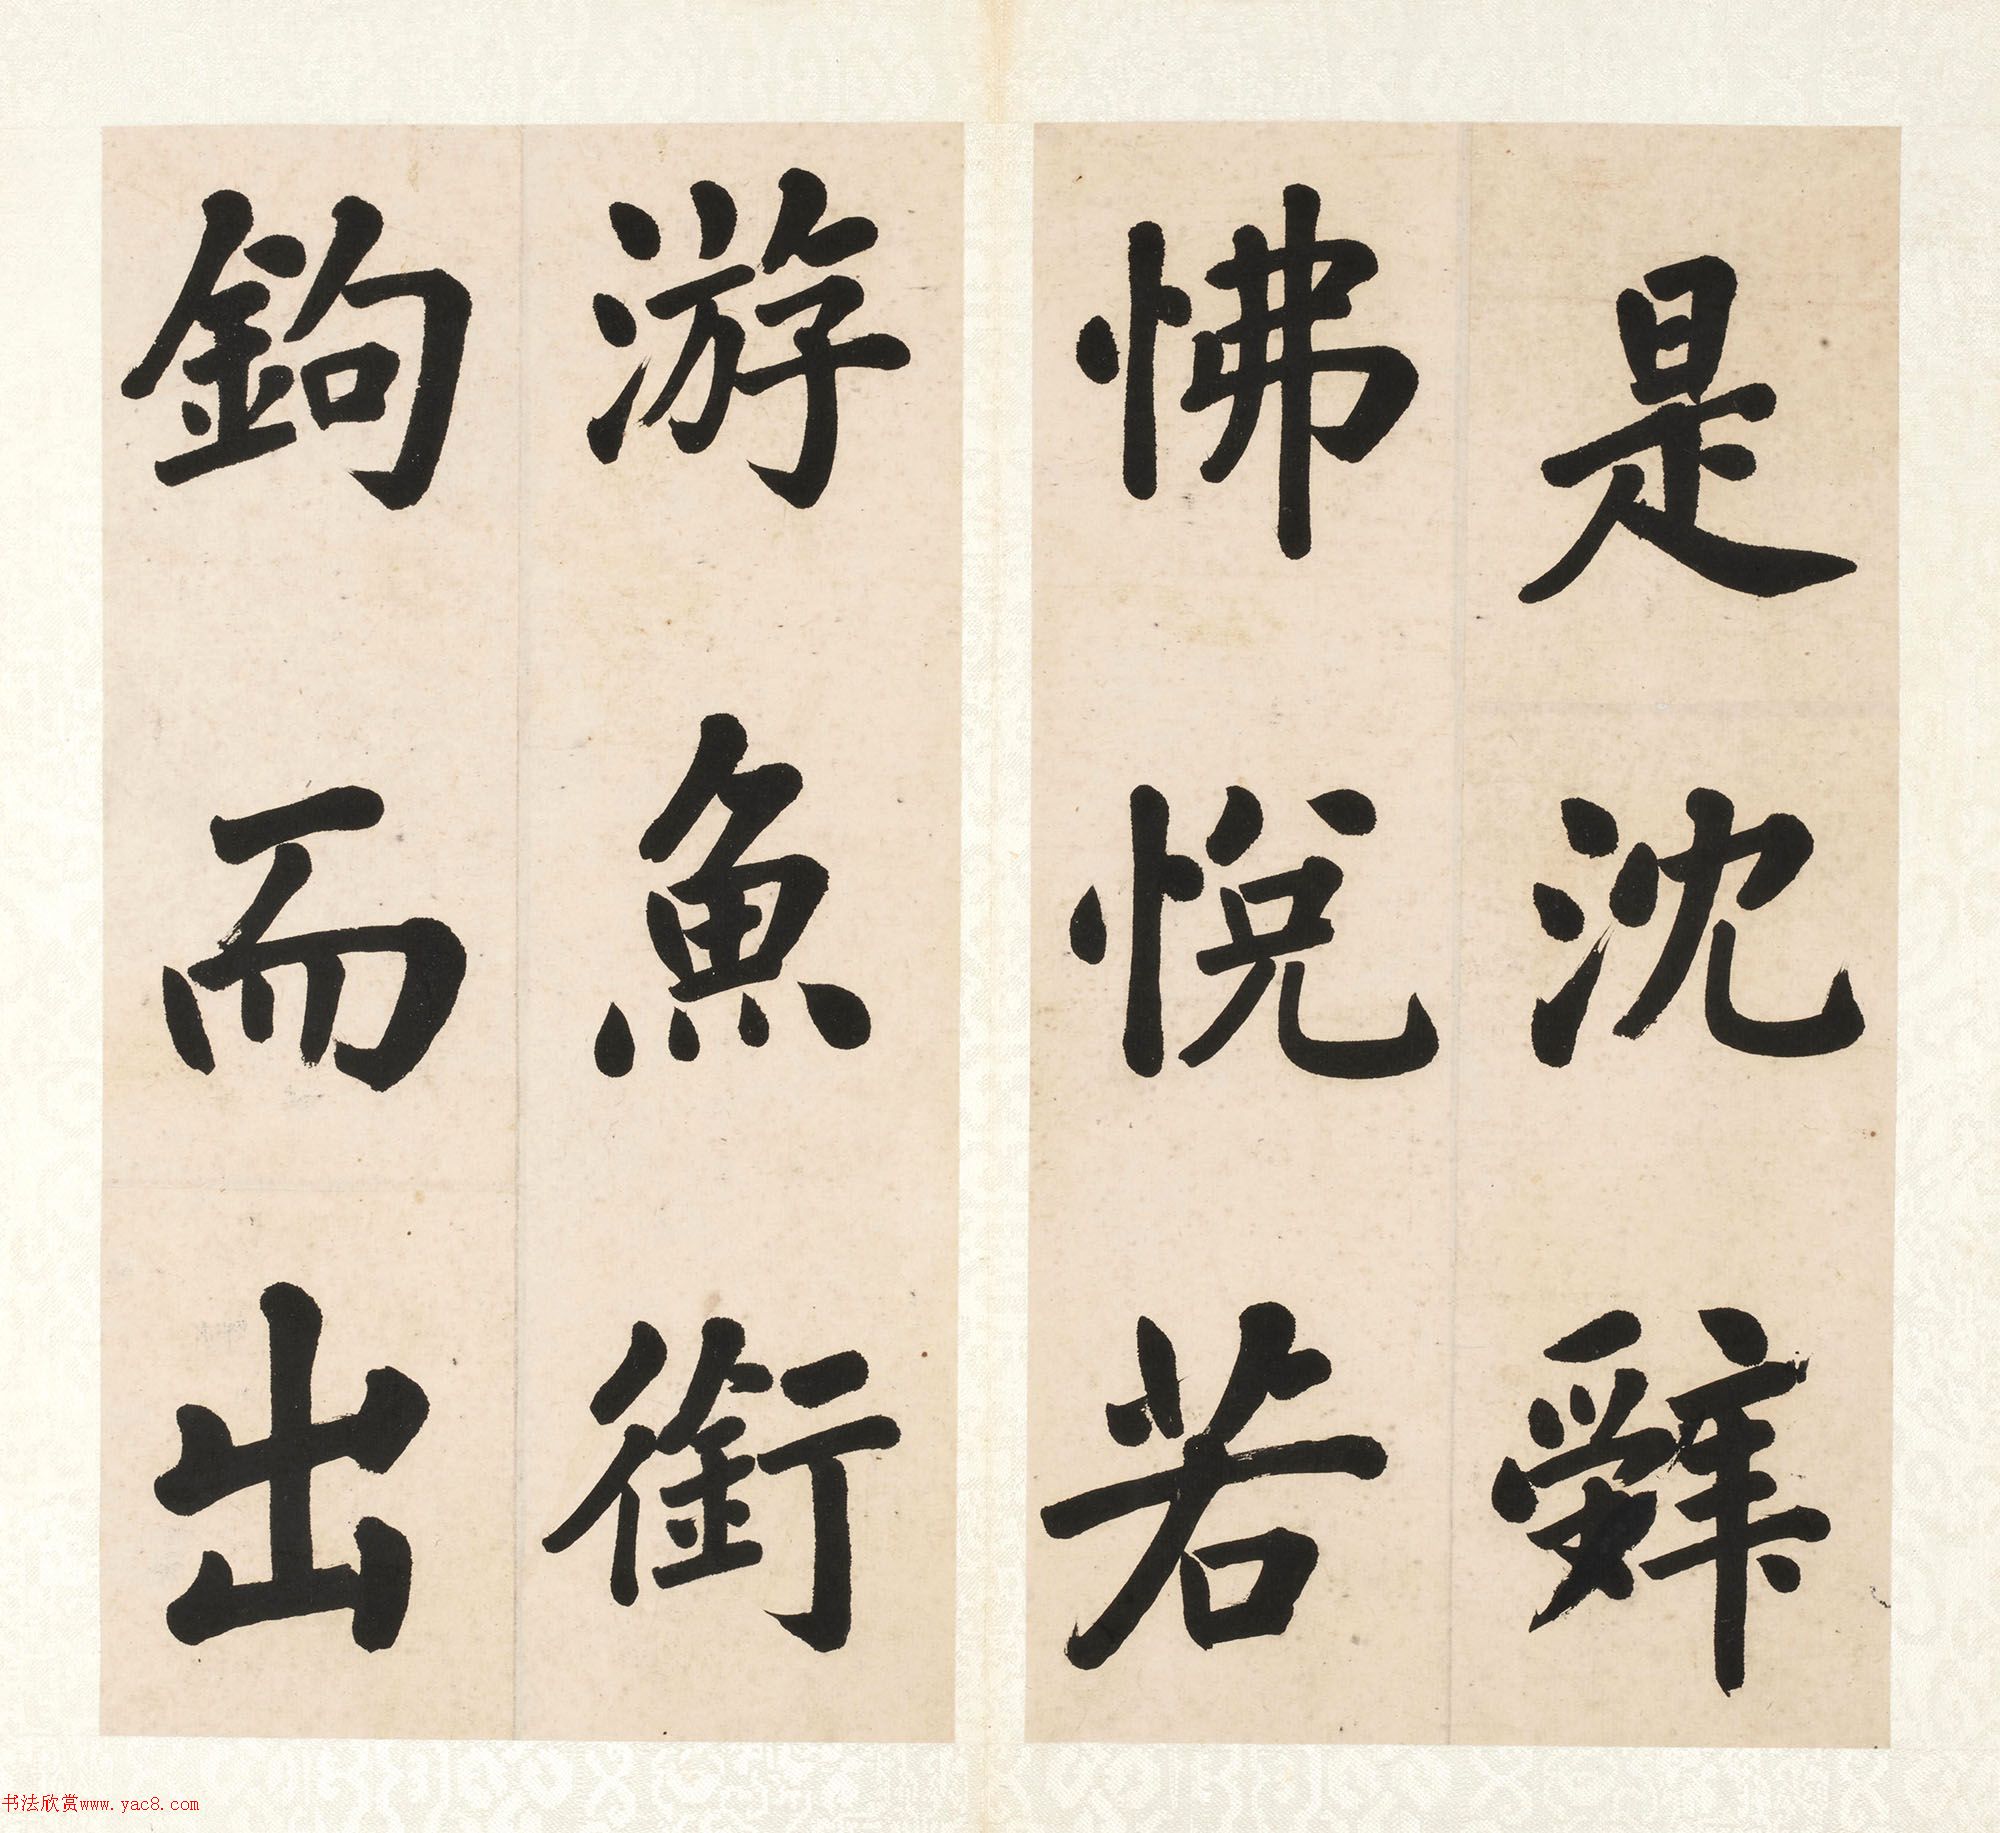 是沈辭
怫悅若
游魚銜
鉤而出
书法欣赏www.yac8.com